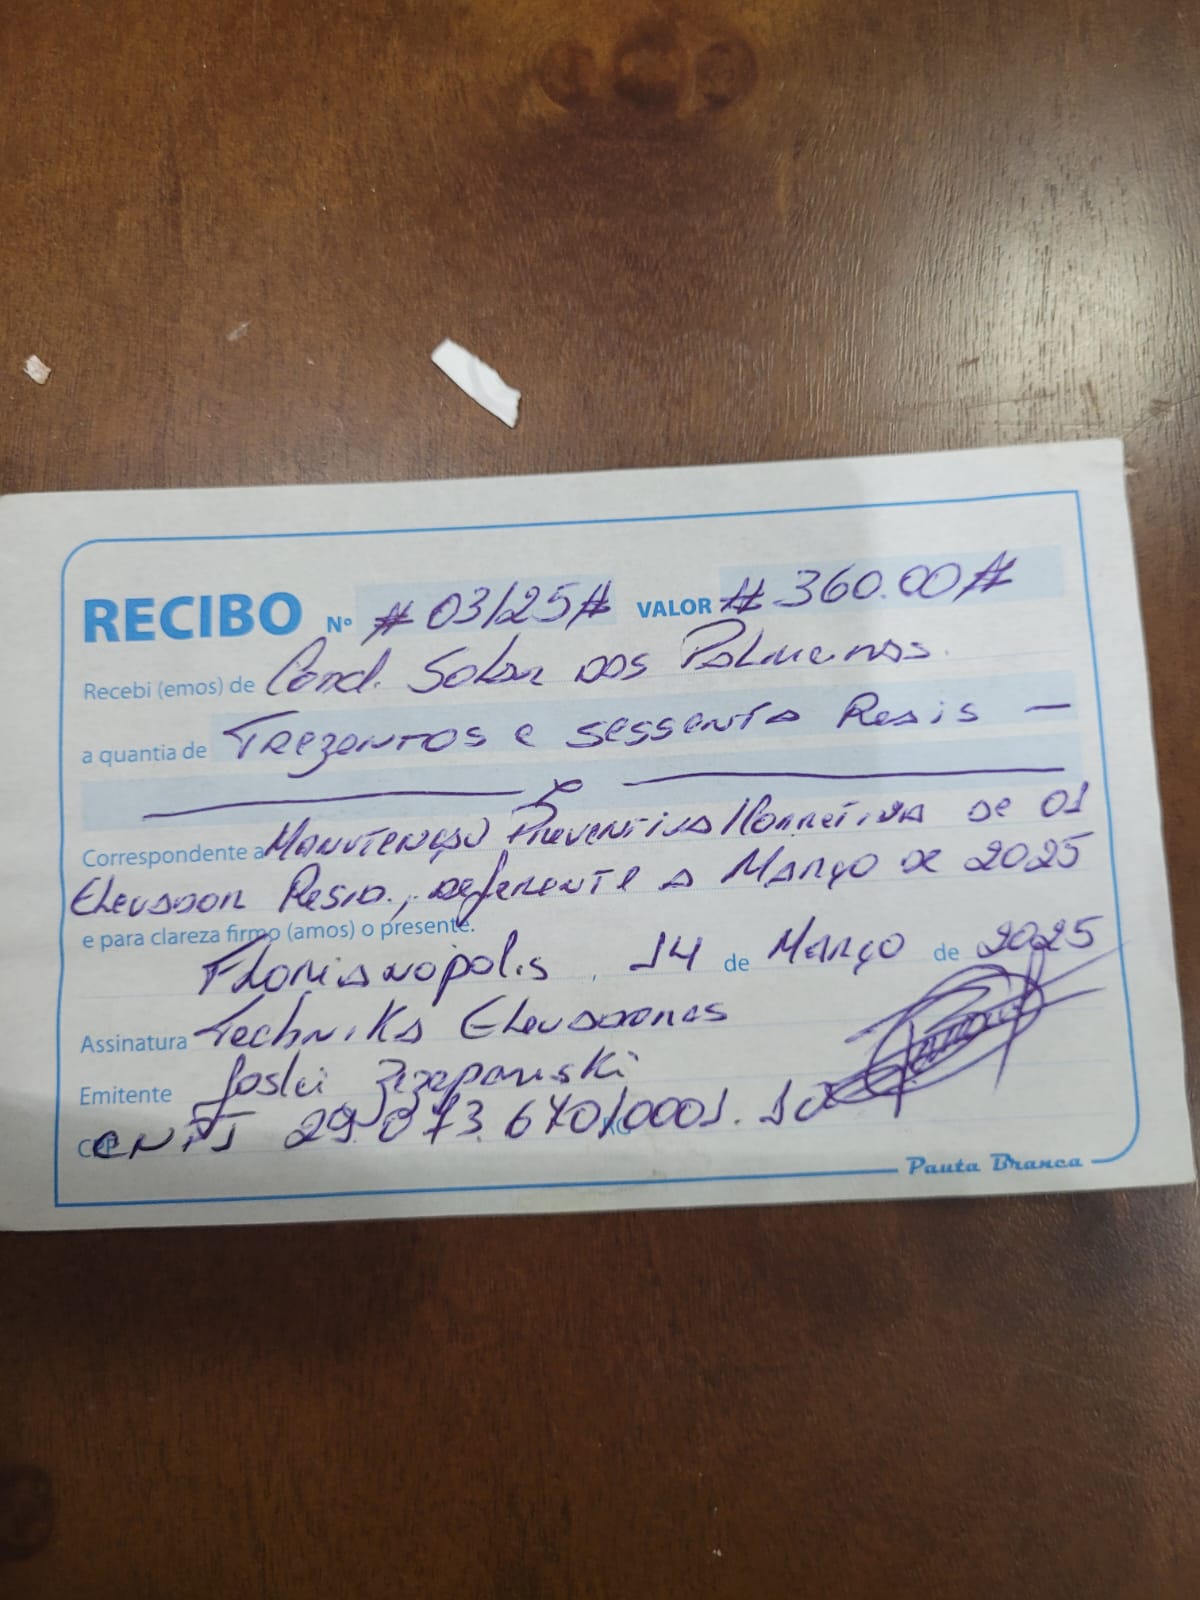 RECIBO Nº # 03/25 # VALOR # 360.00 #
Recebi (emos) de Cond. Solar dos Palmeiras.
a quantia de Trezentos e sessenta Reais —
Correspondente a Manutenção Preventiva/Corretiva de 01
Elevador Resid., referente a Março de 2025
e para clareza firmo (amos) o presente.
Florianópolis, 14 de Março de 2025
Assinatura Techniks Elevadores
Emitente Joslei
CNPJ 29.073.670/0001.10
Pauta Branca